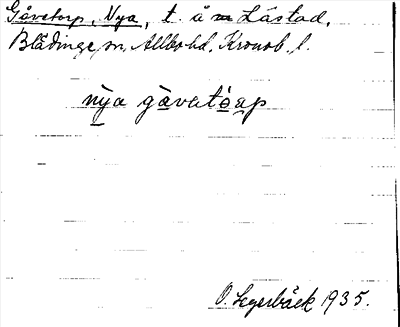 Gåvetorp, Nya, t. å Låstad,
Blädinge sn, Allbo hd, Kronob. l.
nỳa gàvatòap
O. Segerbäck 1935.